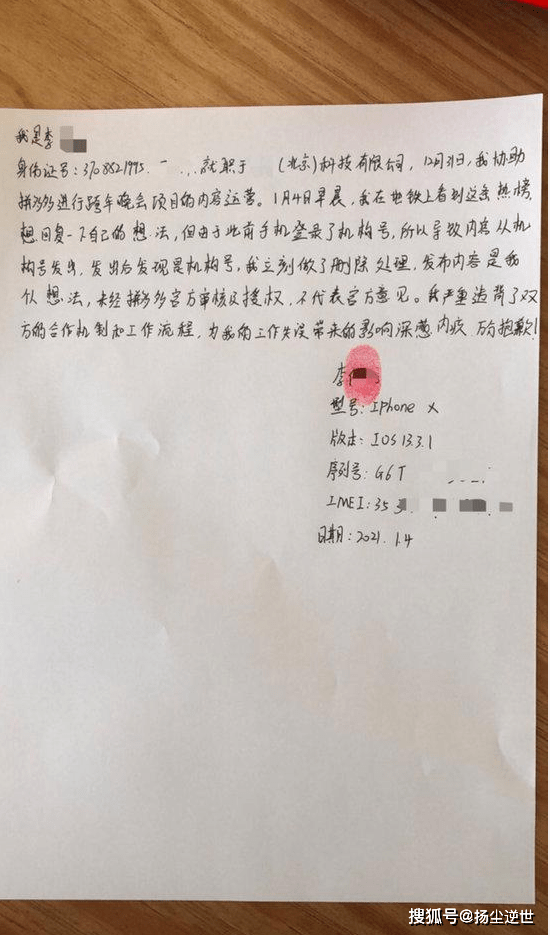 我是李
身份证号:3708821995. 就职于 (北京)科技有限公司,12月31日,我协助
拼多多进行跨年晚会项目的内容运营。1月4日早晨,我在地铁上看到这条热榜,
想回复一下自己的想法,但由于此前手机登录了机构号,所以导致内容从机
构号发出,发出后发现是机构号,我立刻做了删除处理,发布内容是我
私人想法,未经拼多多官方审核及授权,不代表官方意见。我严重违背了双
方的合作机制和工作流程,为我的工作失误带来的影响深感内疚 万分抱歉!
李
型号:IPhone X
版本:IOS 13.3.1
序列号:G6T
IMEI:35
日期:2021.1.4
搜狐号@扬尘逆世